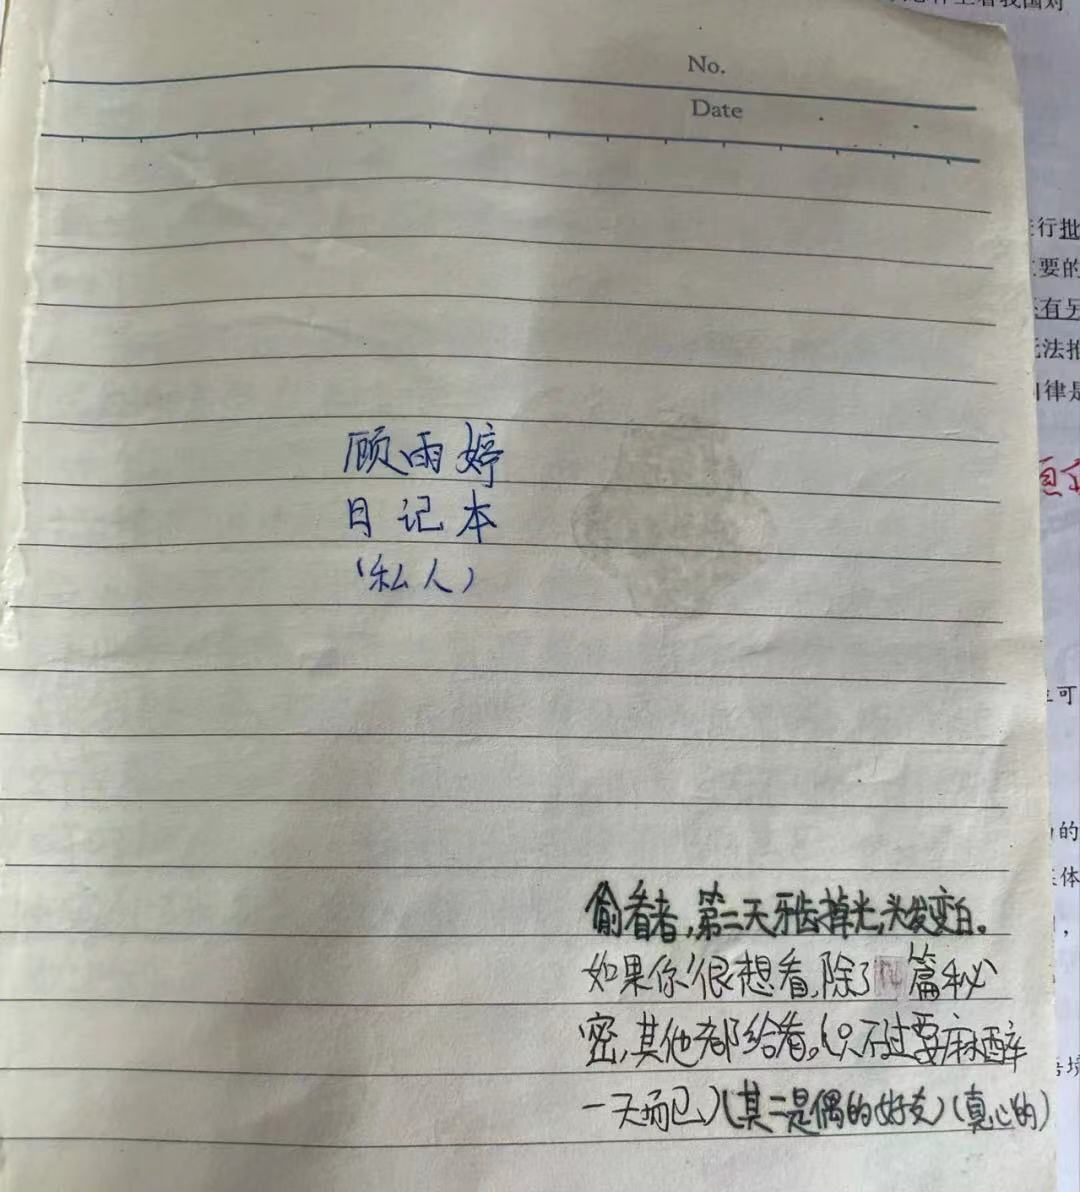 No.
Date
顾雨婷
日记本
(私人)
偷看者,第二天牙齿掉光,头发变白。
如果你很想看,除了 篇秘
密,其他都给看。(只不过要麻醉
一天而已)(其二是偶的好友)(真心的)
行批
要的
有另
无法推
律是
可
的
体